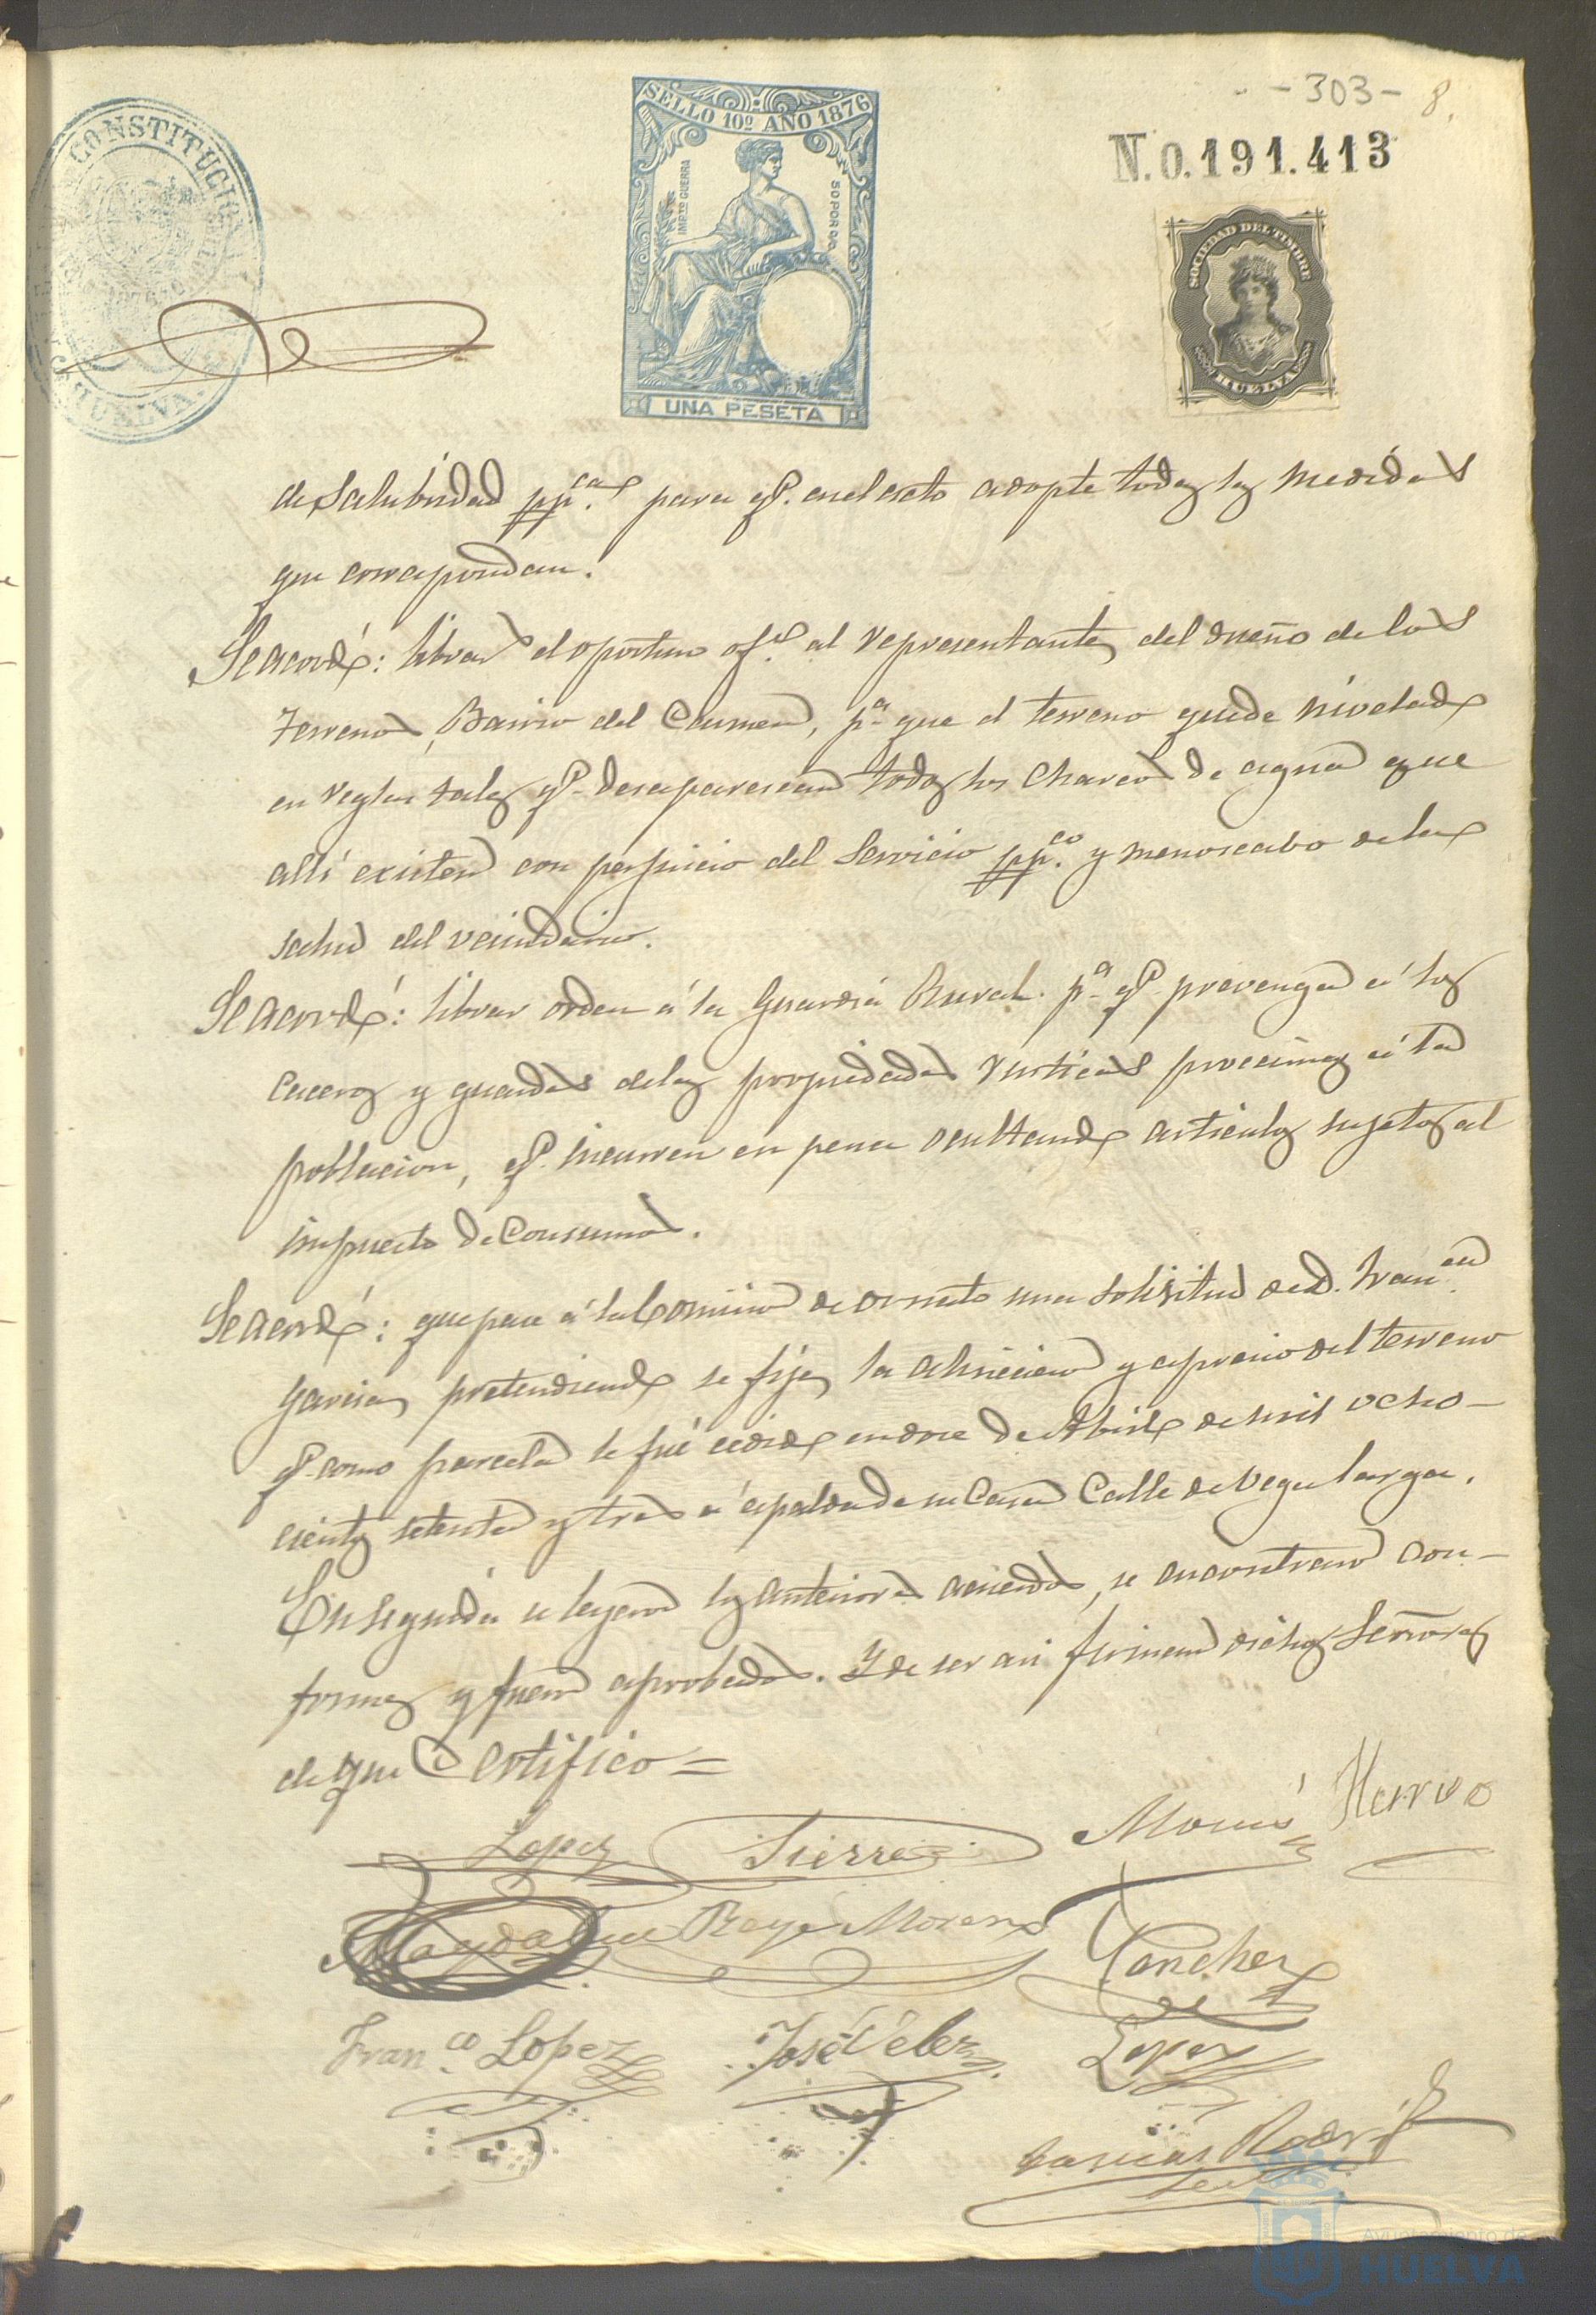 - 303 -
8.
CONSTITUCION
HUELVA
SELLO 10º AÑO 1876
IMPTO GUERRA
50 POR 0/0
UNA PESETA
N.0.191.413
SOCIEDAD DEL TIMBRE
HUELVA
de salubridad ppcas. para qe. en el acto adopte todas las medidas
que correspondan.
Se acordó: librar el oportuno ofo. al representante del dueño de los
terrenos, Barrio del Carmen, pa. que el terreno quede nivelado
en reglas tales qe. desaparescan todos los charcos de agua que
alli existen con perjuicio del servicio ppco. y menoscabo de la
salud del vecindario.
Se acordó: librar orden á la Guardia Rural pa. qe. prevenga á los
caceros y guardas de las propiedades rusticas procsimas á la
poblacion, qe. incurren en pena ocultando articulos sujetos al
impuesto de Consumos.
Se acordó: que pase á la Comision de ornato una solisitud de D. Fran
Garcia pretendiendo se fije la alineacion y aprecio del terreno
qe. como parcela le fué cedido en doce de Abril de mil ocho-
cientos setenta y tres á espalda de su Casa Calle de Vega larga.
En seguida se leyeron los anteriores acuerdos, se encontraron con-
formes y fueron aprobados. Y de ser asi firman dichos Señores
de que Certifico =
Lopez Sierra Hervo
Magdalena Rayo Moreno Sanchez
Franco. Lopez José Velez Lopez
Rodri
Ayuntamiento de
HUELVA